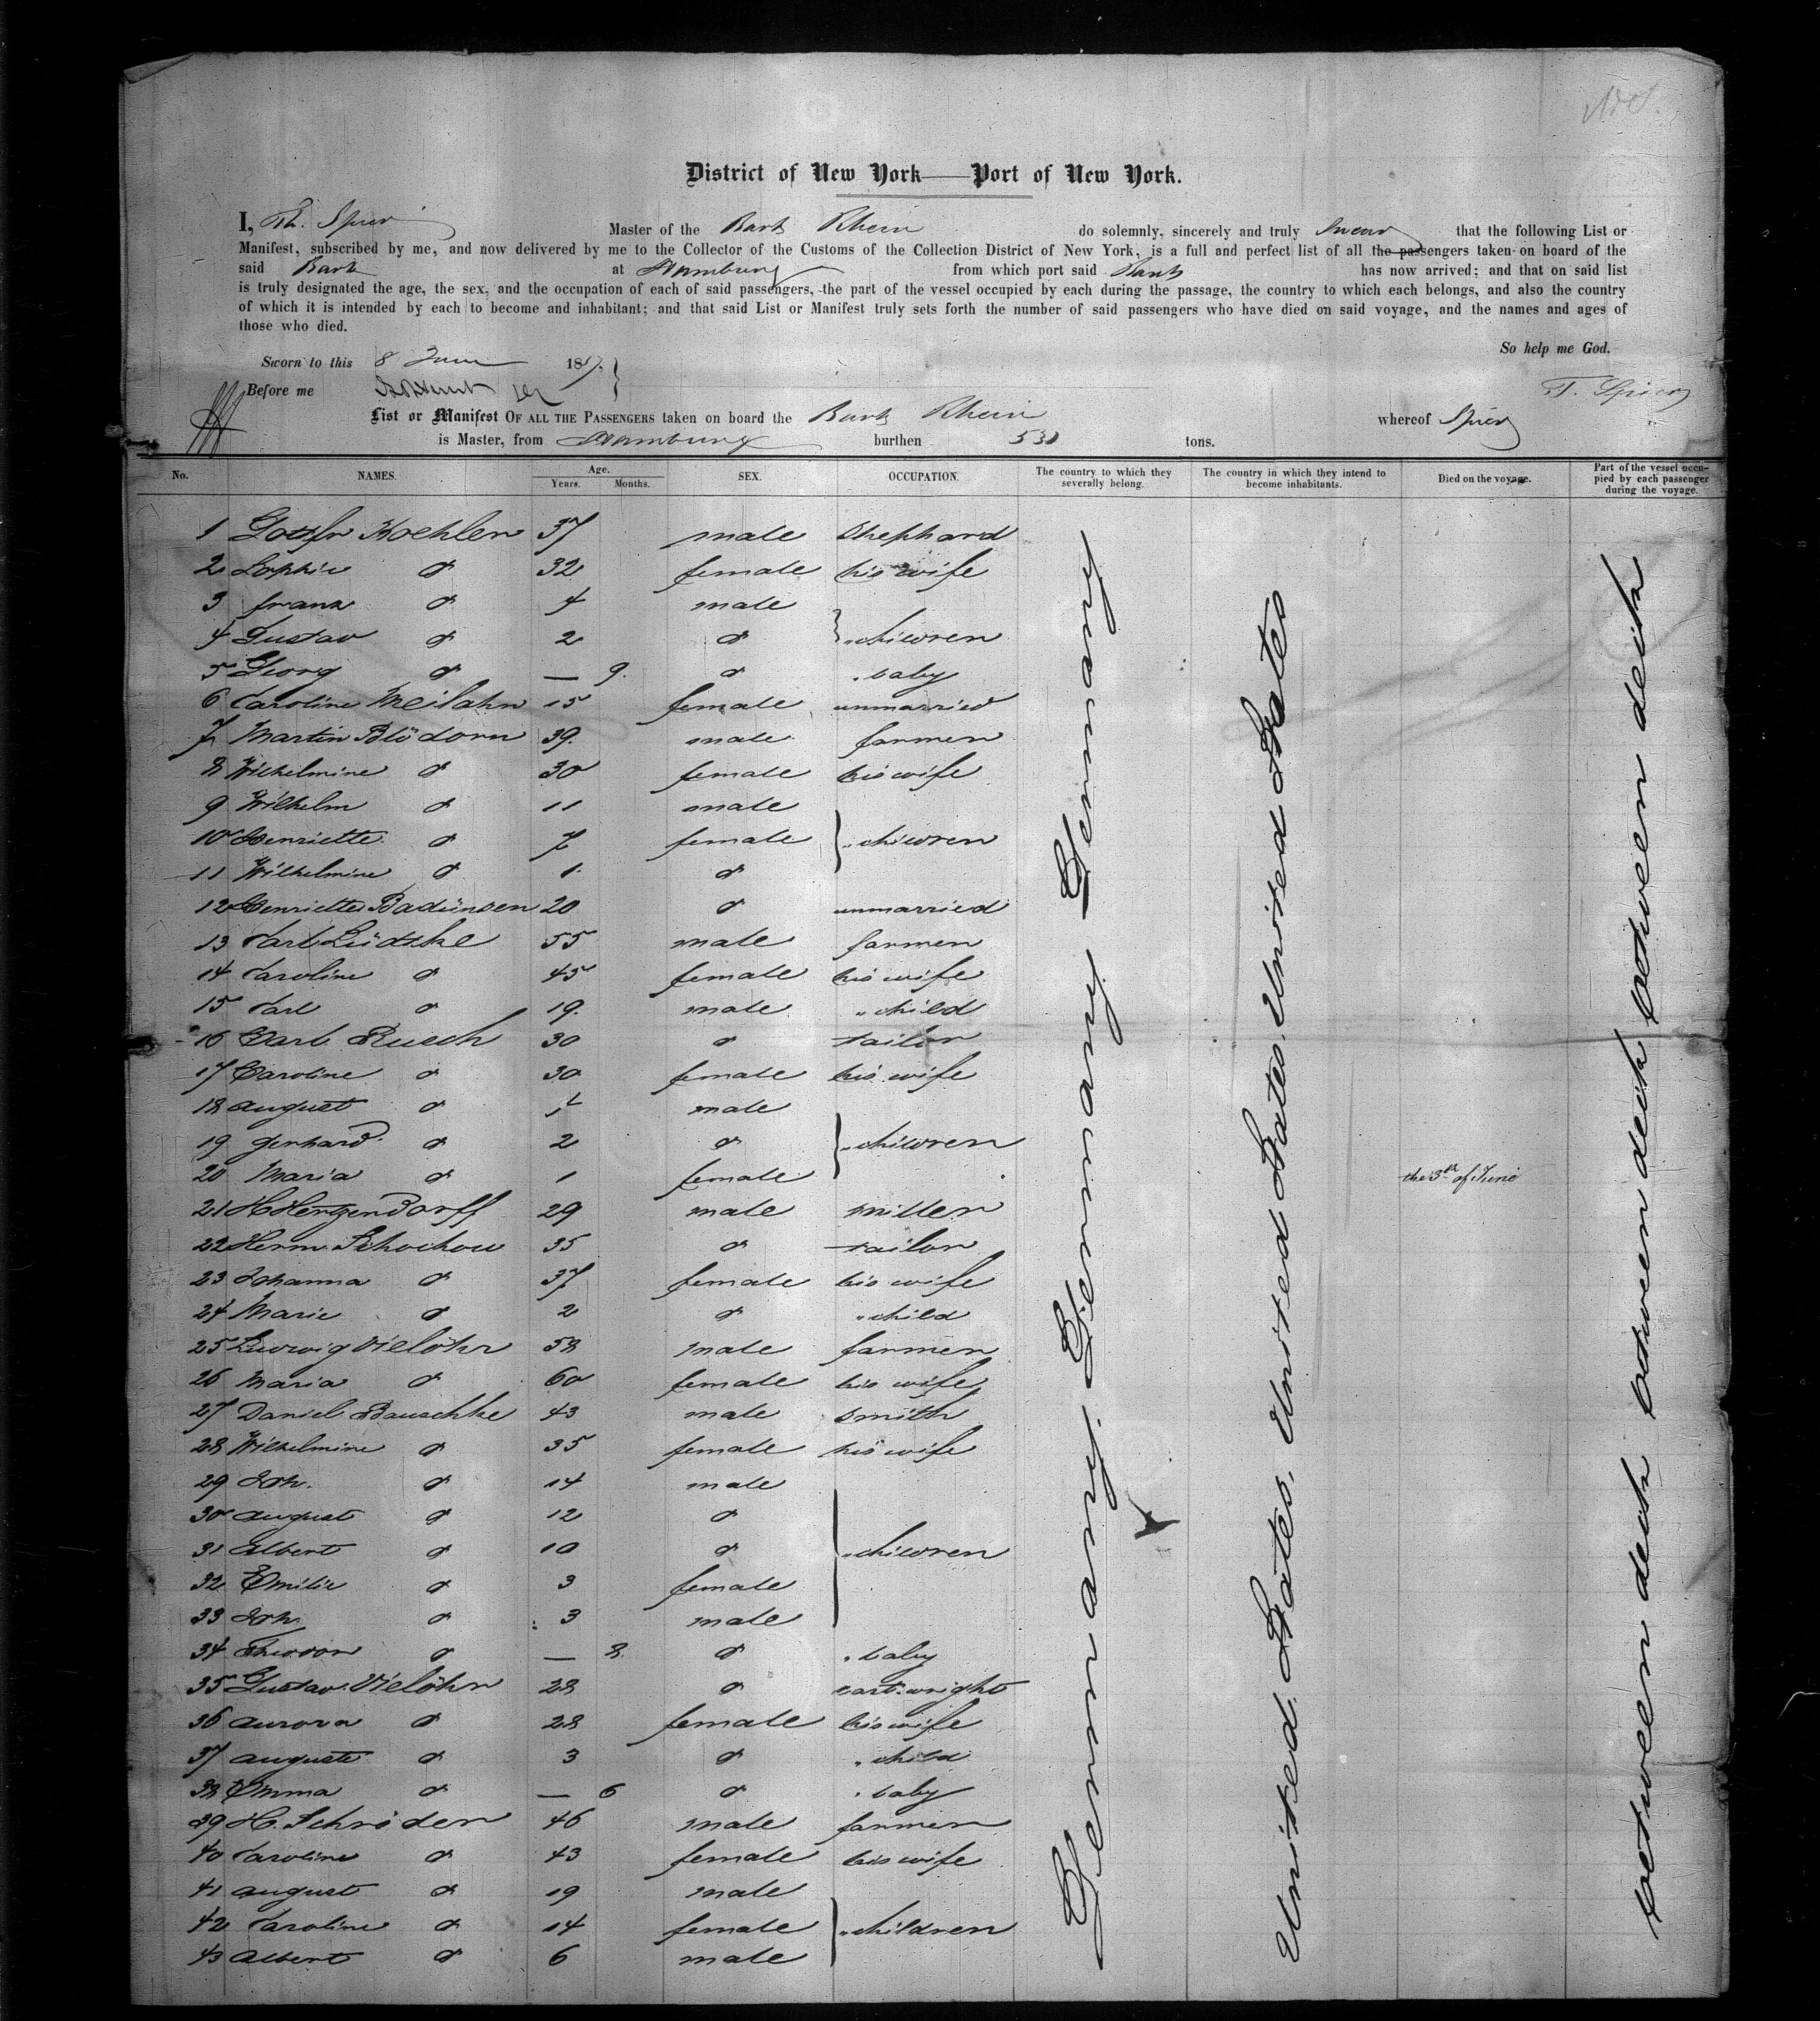 District of New York — Port of New York.
I, Th. Spier Master of the Bark Rhein do solemnly, sincerely and truly swear that the following List or
Manifest, subscribed by me, and now delivered by me to the Collector of the Customs of the Collection District of New York, is a full and perfect list of all the passengers taken on board of the
said Bark at Hamburg from which port said Bark has now arrived; and that on said list
is truly designated the age, the sex, and the occupation of each of said passengers, the part of the vessel occupied by each during the passage, the country to which each belongs, and also the country
of which it is intended by each to become and inhabitant; and that said List or Manifest truly sets forth the number of said passengers who have died on said voyage, and the names and ages of
those who died.
So help me God.
Sworn to this 8 June 185
Before me
List or Manifest OF ALL THE PASSENGERS taken on board the Bark Rhein whereof Spier
is Master, from Hamburg burthen 530 tons.
No. NAMES. Age. Years. Months. SEX. OCCUPATION. The country to which they severally belong. The country in which they intend to become inhabitants. Died on the voyage. Part of the vessel occupied by each passenger during the voyage.
1 Koehler 37 male Shephard
2 Sophie do 32 female his wife
3 franz do 4 male
4 Gustav do 2 do } " children
5 Georg do — 9. do " baby
6 Caroline Meilahn 15 female unmarried
7 Martin Blödorn 39. male farmer
8 Wilhelmine do 30 female his wife
9 Wilhelm do 11 male
10 Henriette do 7 female } " children
11 Wilhelmine do 1. do
12 Henriette Badünsen 20 do unmarried
13 Carl Lüdtke 55 male farmer
14 Caroline do 45 female his wife
15 Carl do 19. male " child
16 Carl Rusch 30 do tailor
17 Caroline do 30 female his wife
18 august do male
19 gerhard do 2 do } " children
20 Maria do 1 female the 3th of June
21 H Hertzendorff 29 male miller
22 Herm Schochow 35 do tailor
23 Johanna do 37 female his wife
24 Marie do 2 do " child
25 Ludwig Vielöhr 58 male farmer
26 Maria do 60 female his wife
27 Daniel Bauschke 43 male smith
28 Wilhelmine do 35 female his wife
29 Joh. do 14 male
30 august do 12 do
31 Albert do 10 do } " children
32 Emilie do 3 female
33 Joh. do 3 male
34 Theodor do — 8. do " baby
35 Gustav Vielöhr 28 do cartwright
36 aurora do 28 female his wife
37 auguste do 3 do " child
38 Emma do — 6 do " baby
39 H. Schröder 46 male farmer
40 Caroline do 43 female his wife
41 august do 19 male
42 Caroline do 14 female } " children
43 Albert do 6 male
Germany Germany Germany Germany
United States, United States, United States, United States
between deck between deck between deck between deck